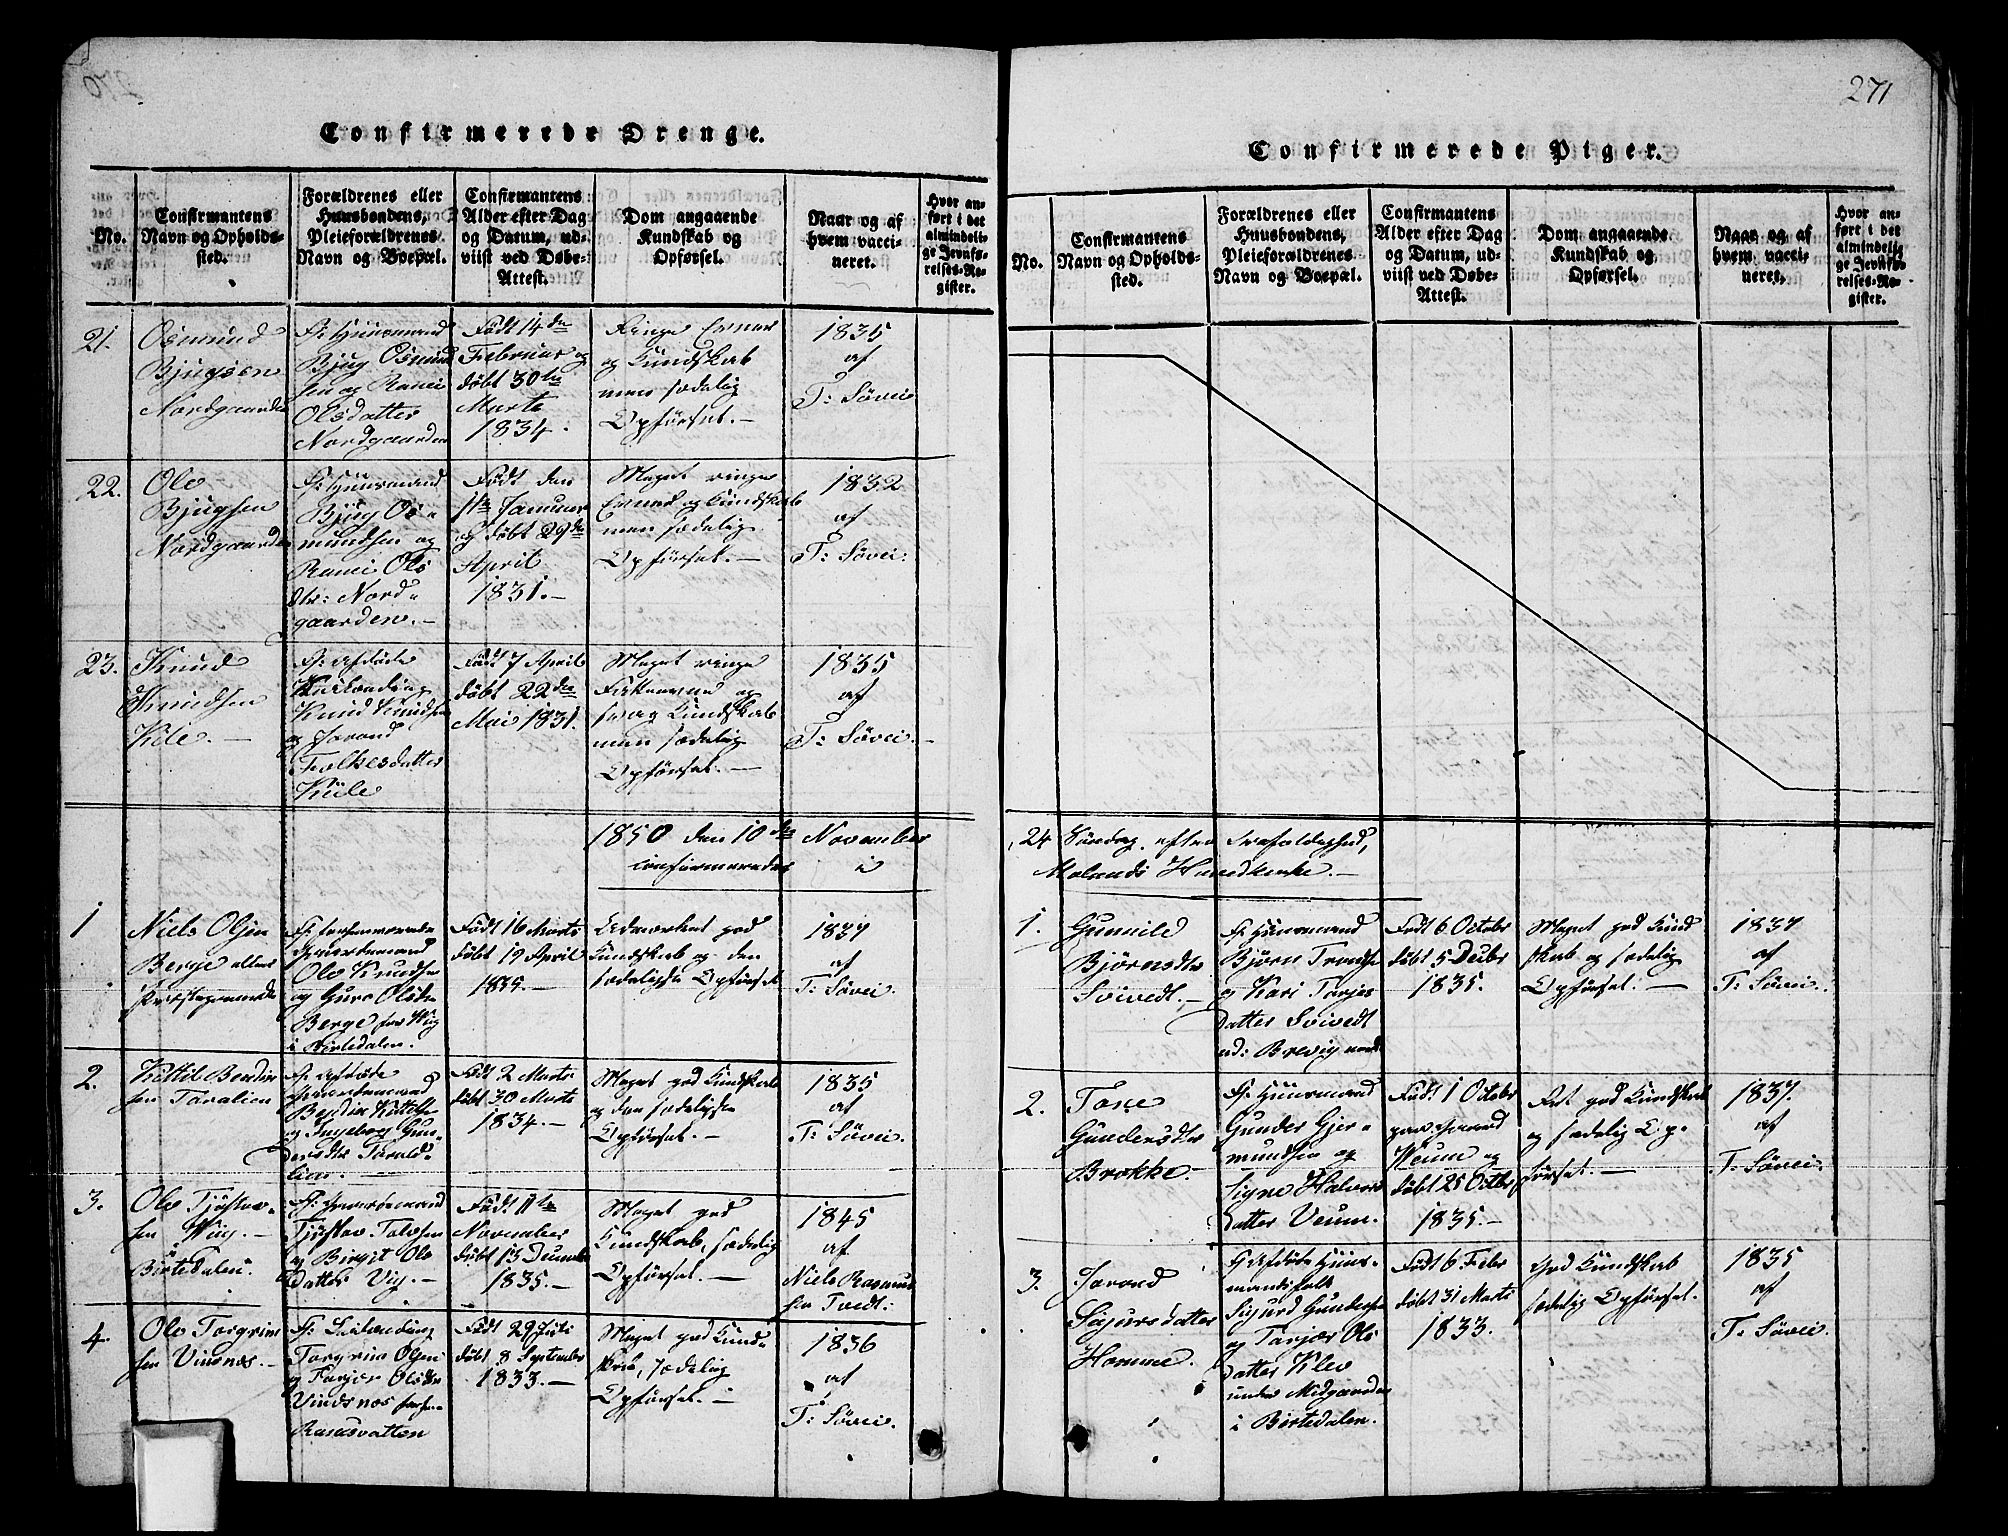 271
Confirmerede Drenge.
No.
Confirmantens
Navn og Opholds-
sted.
Forældrenes eller
Huusbondens,
Pleieforældrenes
Navn og Boepæl.
Confirmantens
Alder efter Dag
og Datum, ud-
viist ved Døbe-
Attest.
Dom angaaende
Kundskab og
Opførsel.
Naar og af
hvem vacci-
neret.
Hvor an-
ført i det
almindeli-
ge Jevnfø-
relses-Re-
gister.
21.
Osmund
Bjugsen
Nordgaarden
F: Huusmand
Bjug Osmund
sen og Ranei
Olsdatter
Nordgaarden
Født 14de
Februar og
døbt 30te
Marts
1834.
Ringe Evner
og Kundskab
men sædelig
Opførsel.—
1835
af
T: Søvei
22.
Olv
Bjugsen
Nordgaarden
F: Huusmand
Bjug Os-
mundsen og
Ranei Ols
dtr: Nord-
gaarden.—
Født den
1te Januar
og døbt 29de
April
1831.—
Meget ringe
Evner og Kundskab
men sædelig
Opførsel.—
1832
af
T: Søvei.
23.
Knud
Knudsen
Kile.—
F: Afdøde
Knud Knudsen
og Jorond
Folkesdatter
Kiile
Født 7 April
døbt 22de
Mai 1831.
Meget ringe
og
svag Kundskab
men sædelig
Opførsel.—
1835
af
T: Søvei.—
1850 den 10de November
confirmeredes i
1
Niels Olsen
Berge
F:
Olv Knudsen
og Guro Olsdtr
Berge
i Birtedalen.
Født 16 Marts
døbt 19 April
1835.—
Udmærket god
Kundskab og den
sædeligste Opførsel
1837
af
T: Søvei.
2.
Kittil Bendix
sen
F: Afdøde
Bendix Kittils
og Ingebog Gun-
dersdtr Tarald-
lien.—
Født 2 Marts
døbt 30 Marts
1834.—
Meget god Kundskab
og den sædeligste
Opførsel.—
1835
af
T: Søvei.
3.
Olv Tjøstov-
sen Wiig.—
Birtedalen.
F:
Tjøstov
og Birgit Ols
datter Vig.—
Født 11te
November
døbt 13 December
1835.—
Meget god
Kundskab, sædelig
Opførsel.—
1845
af
Niels Rasmus
sen Tvedt.
4.
Olv Torgrim
sen Vinsnæs.—
F:
Torgrim Olsen
og Torjer Olsdtr
Vindsnos
Født 29 Juli
døbt 8 September
1833.—
Meget god Kund-
skab, sædelig
Opførsel.—
1836
af
T: Søvei.
Confirmerede Piger.
No.
Confirmantens
Navn og Opholds-
sted.
Forældrenes eller
Huusbondens,
Pleieforældrenes
Navn og Boepæl.
Confirmantens
Alder efter Dag
og Datum, ud-
viist ved Døbe-
Attest.
Dom angaaende
Kundskab og
Opførsel.
Naar og af
hvem vacci-
neret.
Hvor an-
ført i det
almindelig-
ge Jevnfø-
relses-Re-
gister.
24 Søndag efter Trefoldighed,
Molands Hovedkirke.—
1.
Gunnild
Bjørnsdtr
Svivedt.—
F: Huusmand
Bjørn Tronds
og Kari Tarjes
datter Svivedt
Født 6 October
døbt 5 Decbr
1835.
Meget god Kund
skab og sædelig
Opførsel.—
1837
af
T: Søvei.
2.
Tone
Gundersdtr
Brokke.
F: Huusmand
Gunder Gjer-
mundsen og
Signe Halvors
datter Veum.
Født 1 October
Weum og
døbt 25 Octbr
1835.—
Ret god Kundskab
og sædelig Op-
førsel.—
1837.
af
T: Søvei.
3.
Jorond
Sigursdatter
Homme.
F: Afdøde Huus-
mandsfolk
Sigurd Gunders
og Torjær Ols
datter Klev
under Midgaarden
i Birtedalen.
Født 6 Febr
døbt 31 Marts
1833.
God Kundskab
sædelig Opførsel.
1835
af
T: Søvei.